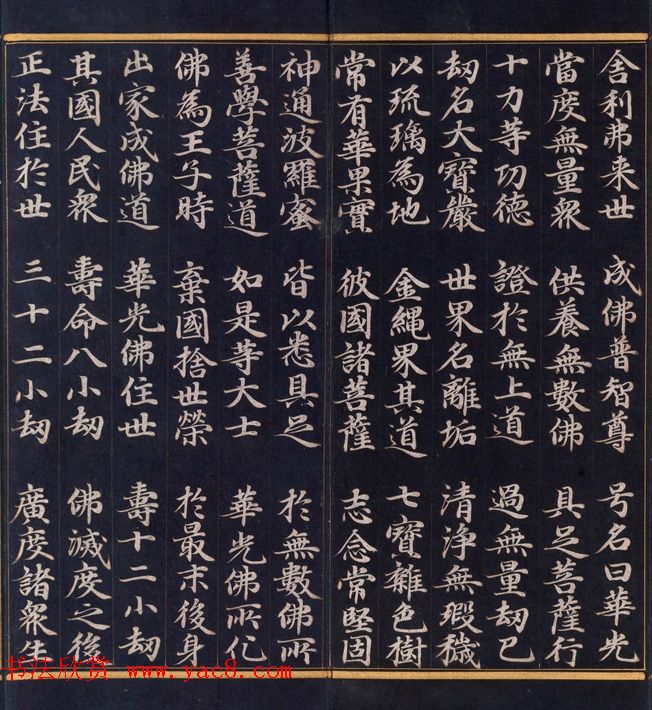 舍利弗来世 成佛普智尊 号名曰華光
當度無量衆 供養無數佛 具足菩薩行
十力等功德 證於無上道 過無量劫已
劫名大寶嚴 世界名離垢 清淨無瑕穢
以琉璃為地 金繩界其道 七寶雜色樹
常有華果實 彼國諸菩薩 志念常堅固
神通波羅蜜 皆以悉具足 於無數佛所
善學菩薩道 如是等大士 華光佛所化
佛為王子時 棄國捨世榮 於最末後身
出家成佛道 華光佛住世 壽十二小劫
其國人民衆 壽命八小劫 佛滅度之後
正法住於世 三十二小劫 廣度諸衆生
书法欣赏 www.yac8.com